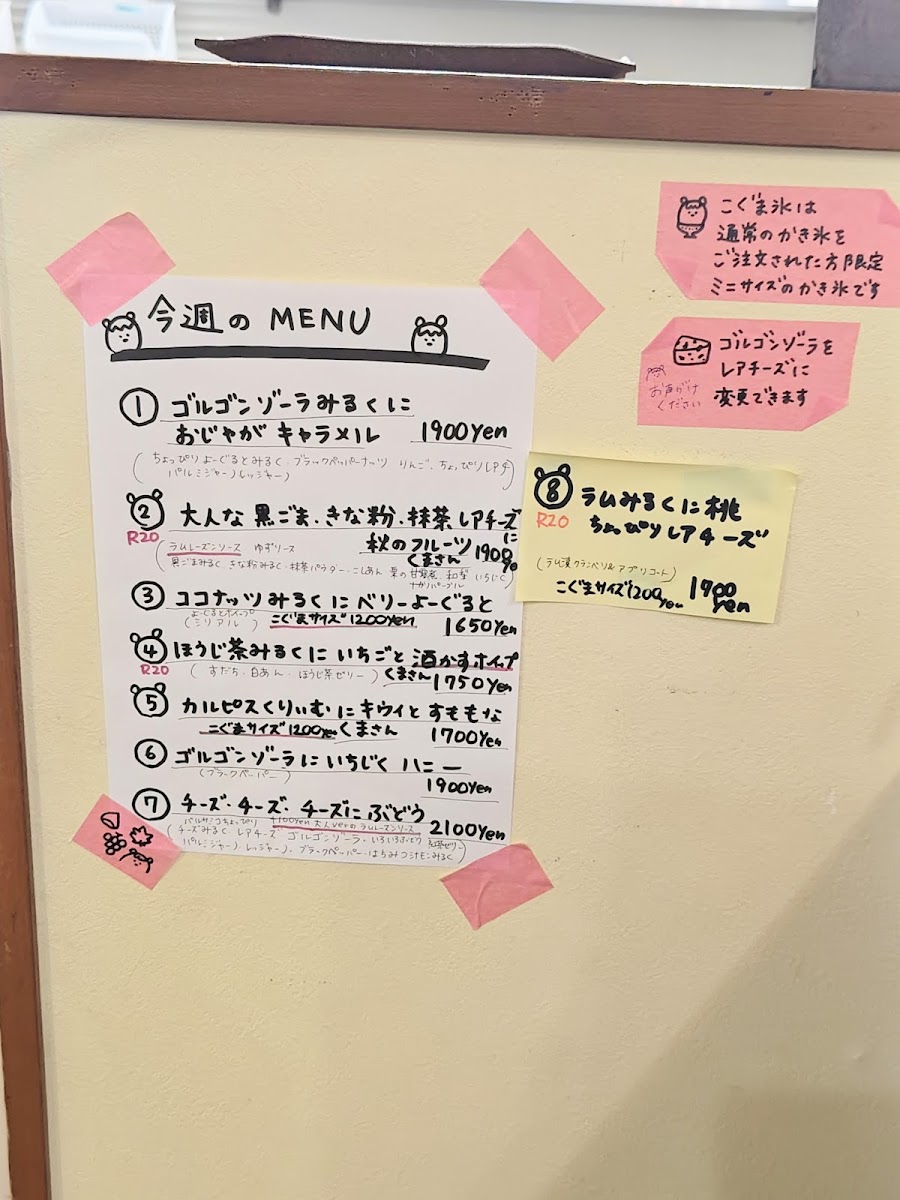 今週の MENU
① ゴルゴンゾーラみるくに
おじゃがキャラメル 1900yen
(ちょっぴりよーぐるとみるく・ブラックペッパーナッツ りんご、ちょっぴりレアチ
パルミジャーノレッジャーノ)
② 大人な黒ごま・きな粉・抹茶レアチーズに
R20
秋のフルーツ 1900
くまさん
(ラムレーズンソース ゆずソース
黒ごまみるく きな粉みるく・抹茶パウダー・こしあん 栗の甘露煮 和梨 いちじく
ナガノパープル)
③ ココナッツみるくにベリーよーぐると
よーぐるとホイップ
(ミリアル) こぐまサイズ1200yen 1650yen
④ ほうじ茶みるくにいちごと酒かすホイップ
R20 (すだち・白あん・ほうじ茶ゼリー) くまさん 1750yen
⑤ カルピスくりぃむにキウイとすももな
こぐまサイズ1200yen くまさん 1700yen
⑥ ゴルゴンゾーラにいちじくハニー
(ブラックペーパー) 1900yen
⑦ チーズ・チーズ・チーズにぶどう
バルサミコちょっぴり +100yen 大人verのラムレーズンソース 2100yen
(チーズみるく レアチーズ ゴルゴンゾーラ・いろいろぶどう 紅茶ゼリー
パルミジャーノレッジャーノ、ブラックペーパー・はちみつ みるく)
こぐま氷は
通常のかき氷を
ご注文された方限定
ミニサイズのかき氷です
ゴルゴンゾーラを
レアチーズに
変更できます
お声がけ
ください
⑧ ラムみるくに桃
R20 ちょっぴりレアチーズ
(ラム漬クランベリー&アプリコート)
こぐまサイズ1200yen 1700yen